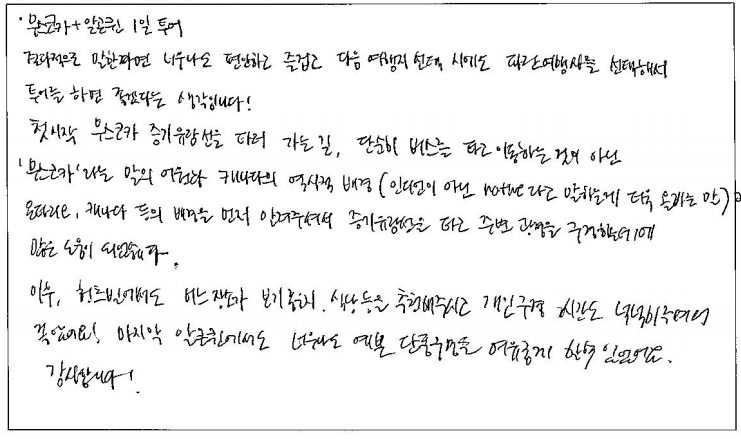 · 무스코카 + 알곤퀸 1일 투어
결과적으로 말한다면 너무나도 편안하고 즐겁고 다음 여행지 선택 시에도 파란여행사를 선택해서
투어를 하면 좋겠다는 생각입니다!
첫시작 무스코카 증기유람선을 타러 가는 길, 단순히 버스를 타고 이동하는 것이 아닌
'무스코카'라는 말의 어원과 캐나다의 역사적 배경 (인디언이 아닌 native라고 말하는게 더욱 옳다는 말)
온타리오, 캐나다 등의 배경을 먼저 알려주셔서 증기유람선을 타고 주변 광경을 구경하는데에
많은 도움이 되었습니다.
이후, 헌츠빌에서도 어느 장소가 보기 좋은지, 식당 등을 추천해주시고 개인구경 시간도 넉넉히주셔서
좋았어요! 마지막 알곤퀸에서도 너무나도 예쁜 단풍구경을 여유롭게 할 수 있었어요.
감사합니다!